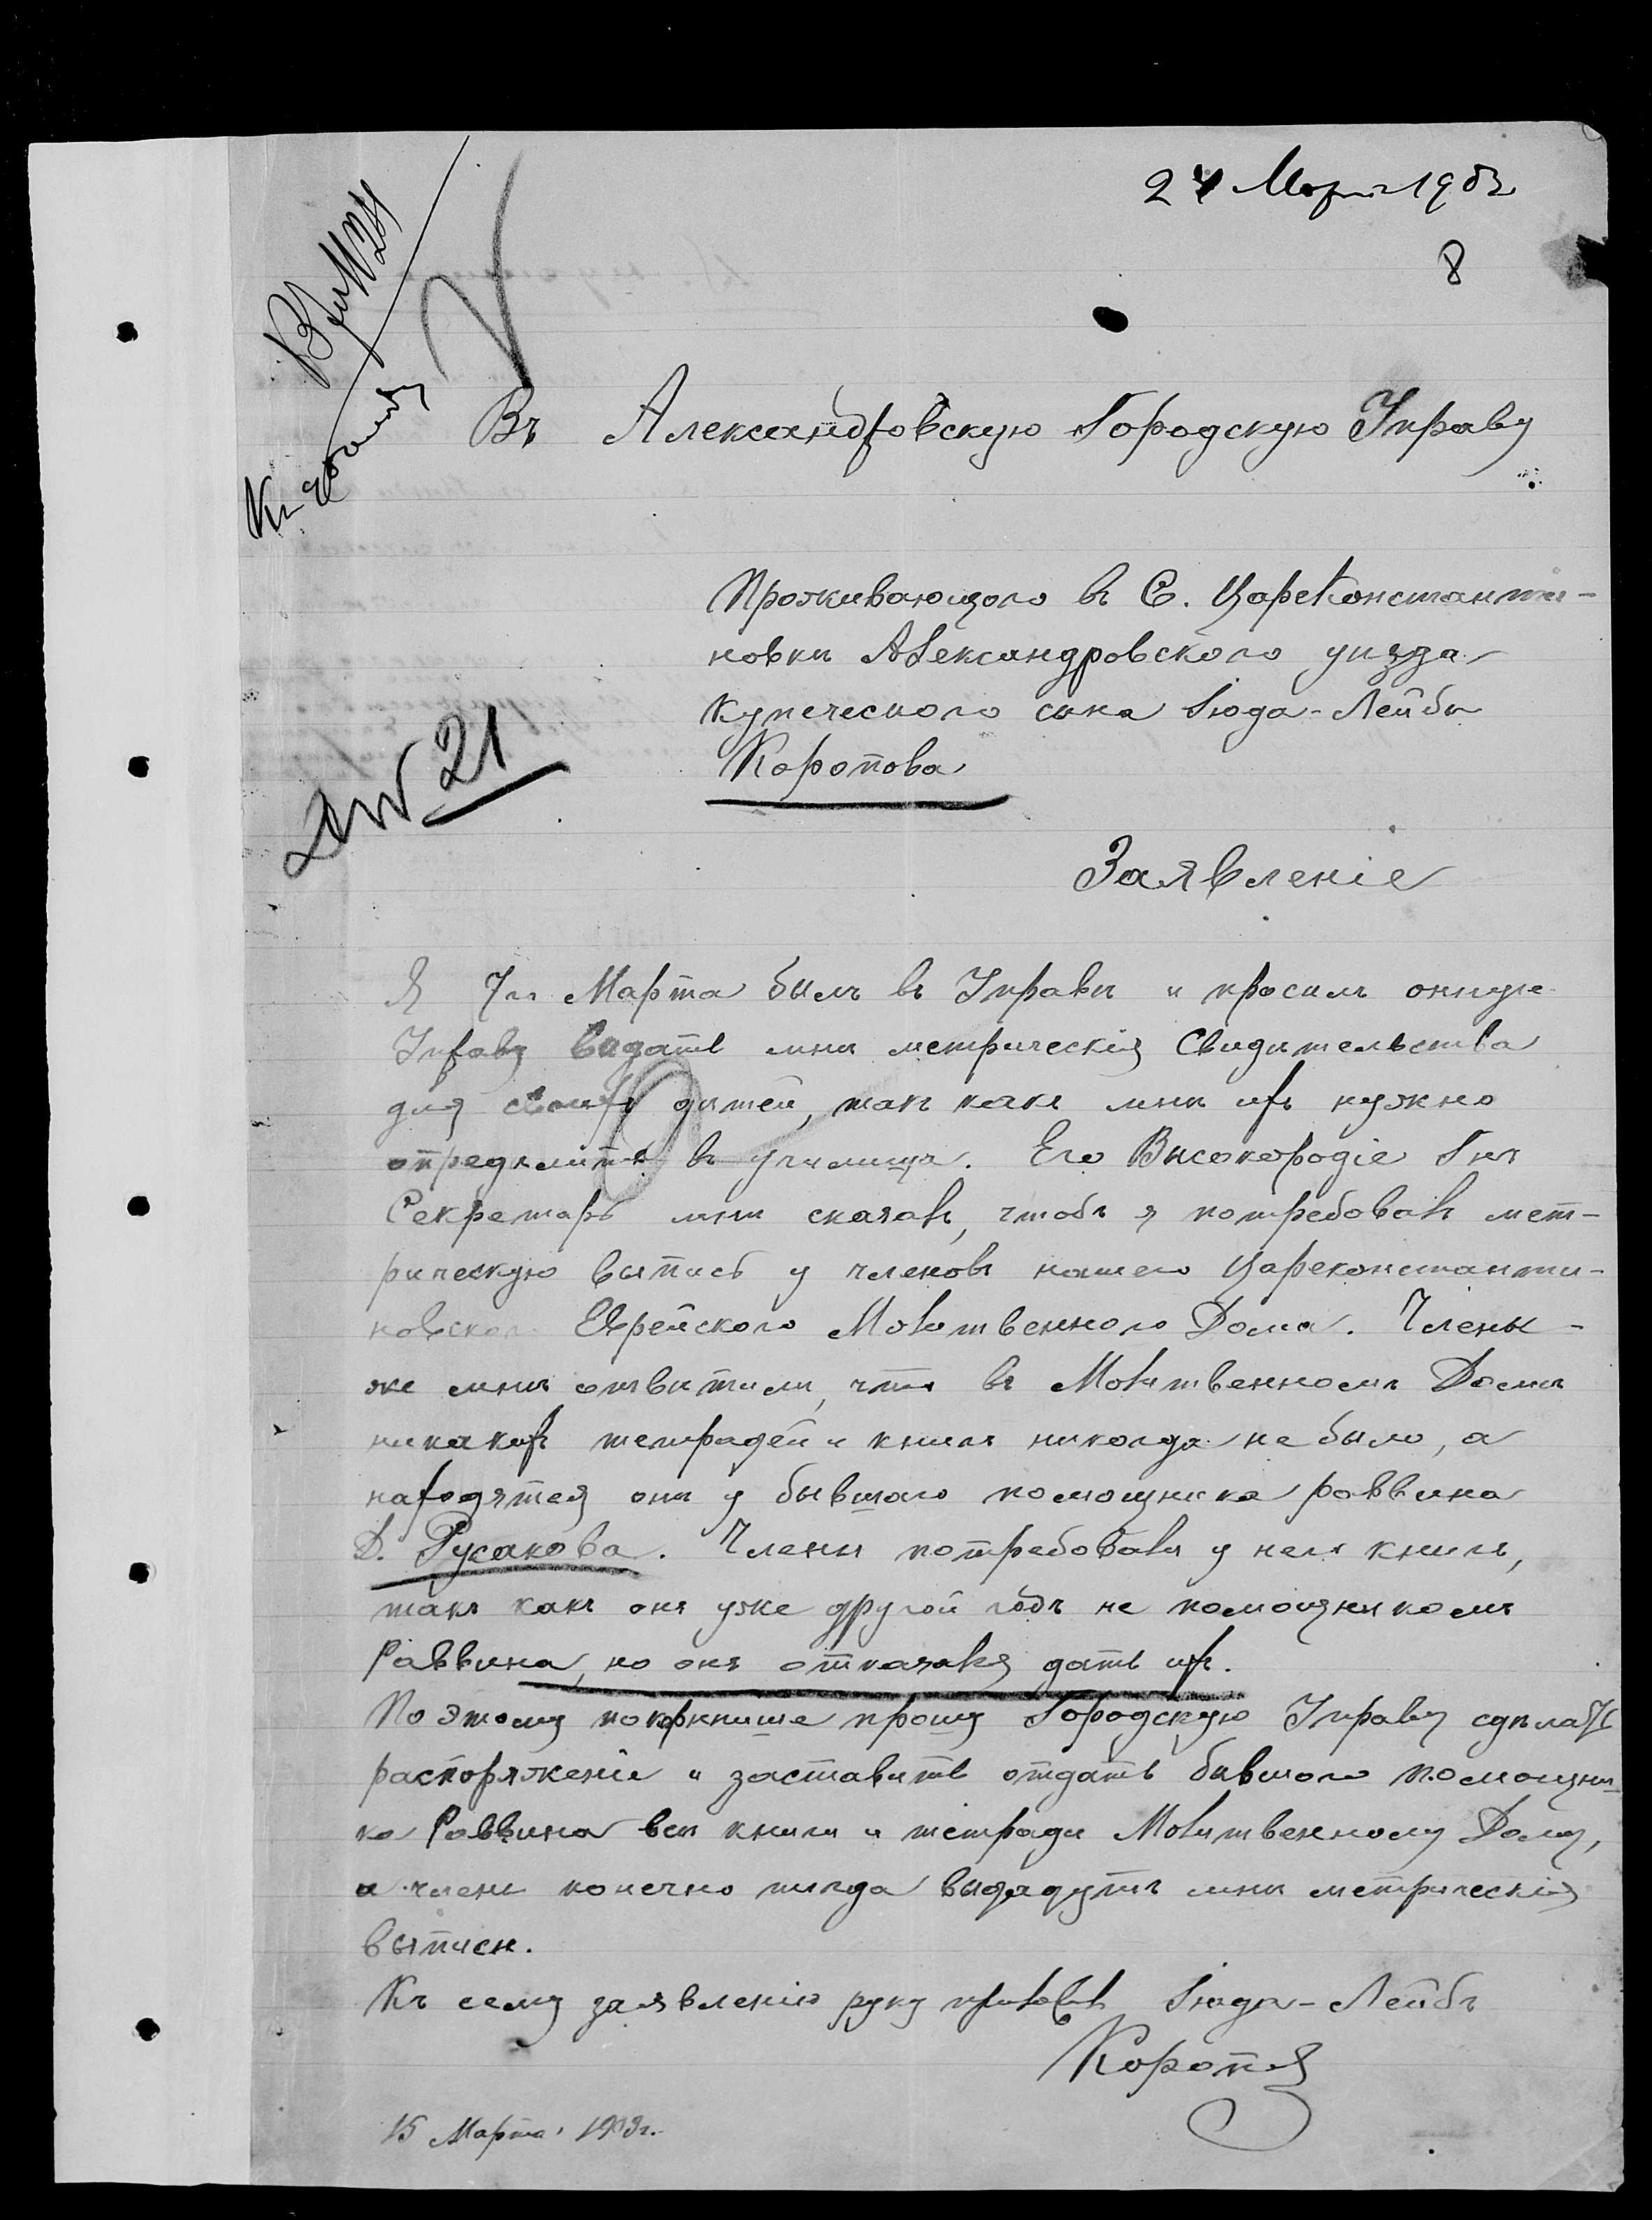 24 Марта 1903
8
Вх. № 21
Къ
Въ Александровскую Городскую Управу
Проживающаго въ С. Цареконстанти-
новкѣ Александровскаго уѣзда
Купеческаго сына Іюда-Лейбы
Коропова
№ 21
Заявленіе
Я 7го Марта былъ въ Управѣ и просилъ оную
Управу видать мнѣ метрическія Свидѣтельства
для своихъ дѣтей, такъ какъ мнѣ ихъ нужно
опредѣлить въ училища. Его Високородіе Гнъ
Секретарь мнѣ сказавъ, чтобъ я потребовавъ мет-
рическую выпись у членовъ нашего Цареконстанти-
новскаго Еврейского Молитвенного Дома. Члены -
же мнѣ отвѣтили, что въ Молитвенномъ Домѣ
никакихъ тетрадей и книгъ никогда не было, а
находятся они у бывшаго помощника раввина
Д. Русакова. Члены потребовали у него книги,
такъ какъ онъ уже другой годъ не помощникомъ
Раввина, но онъ отказався дать ихъ.
Поэтому покорнѣише прошу Городскую Управу сдѣлать
распоряженіе и заставить отдать бившаго помощни-
ка Раввина всѣ книги и тетради Молитвенному Дому,
а члени конечно тогда выдадутъ мнѣ метрическія
выписи.
Къ сему заявленію руку приложивъ Іюда-Лейбъ
Короповъ
15 Марта 1903г.